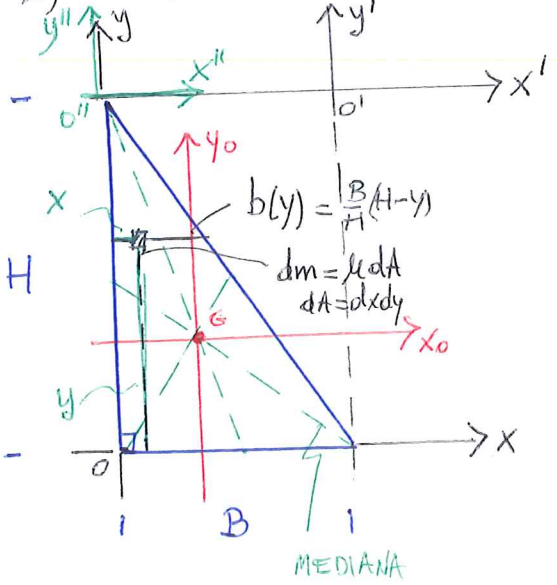 y"
y
y'
x"
x'
o"
o'
yo
x
b(y) = B/H (H-y)
dm = μdA
dA = dxdy
H
G
xo
y
o
x
B
MEDIANA